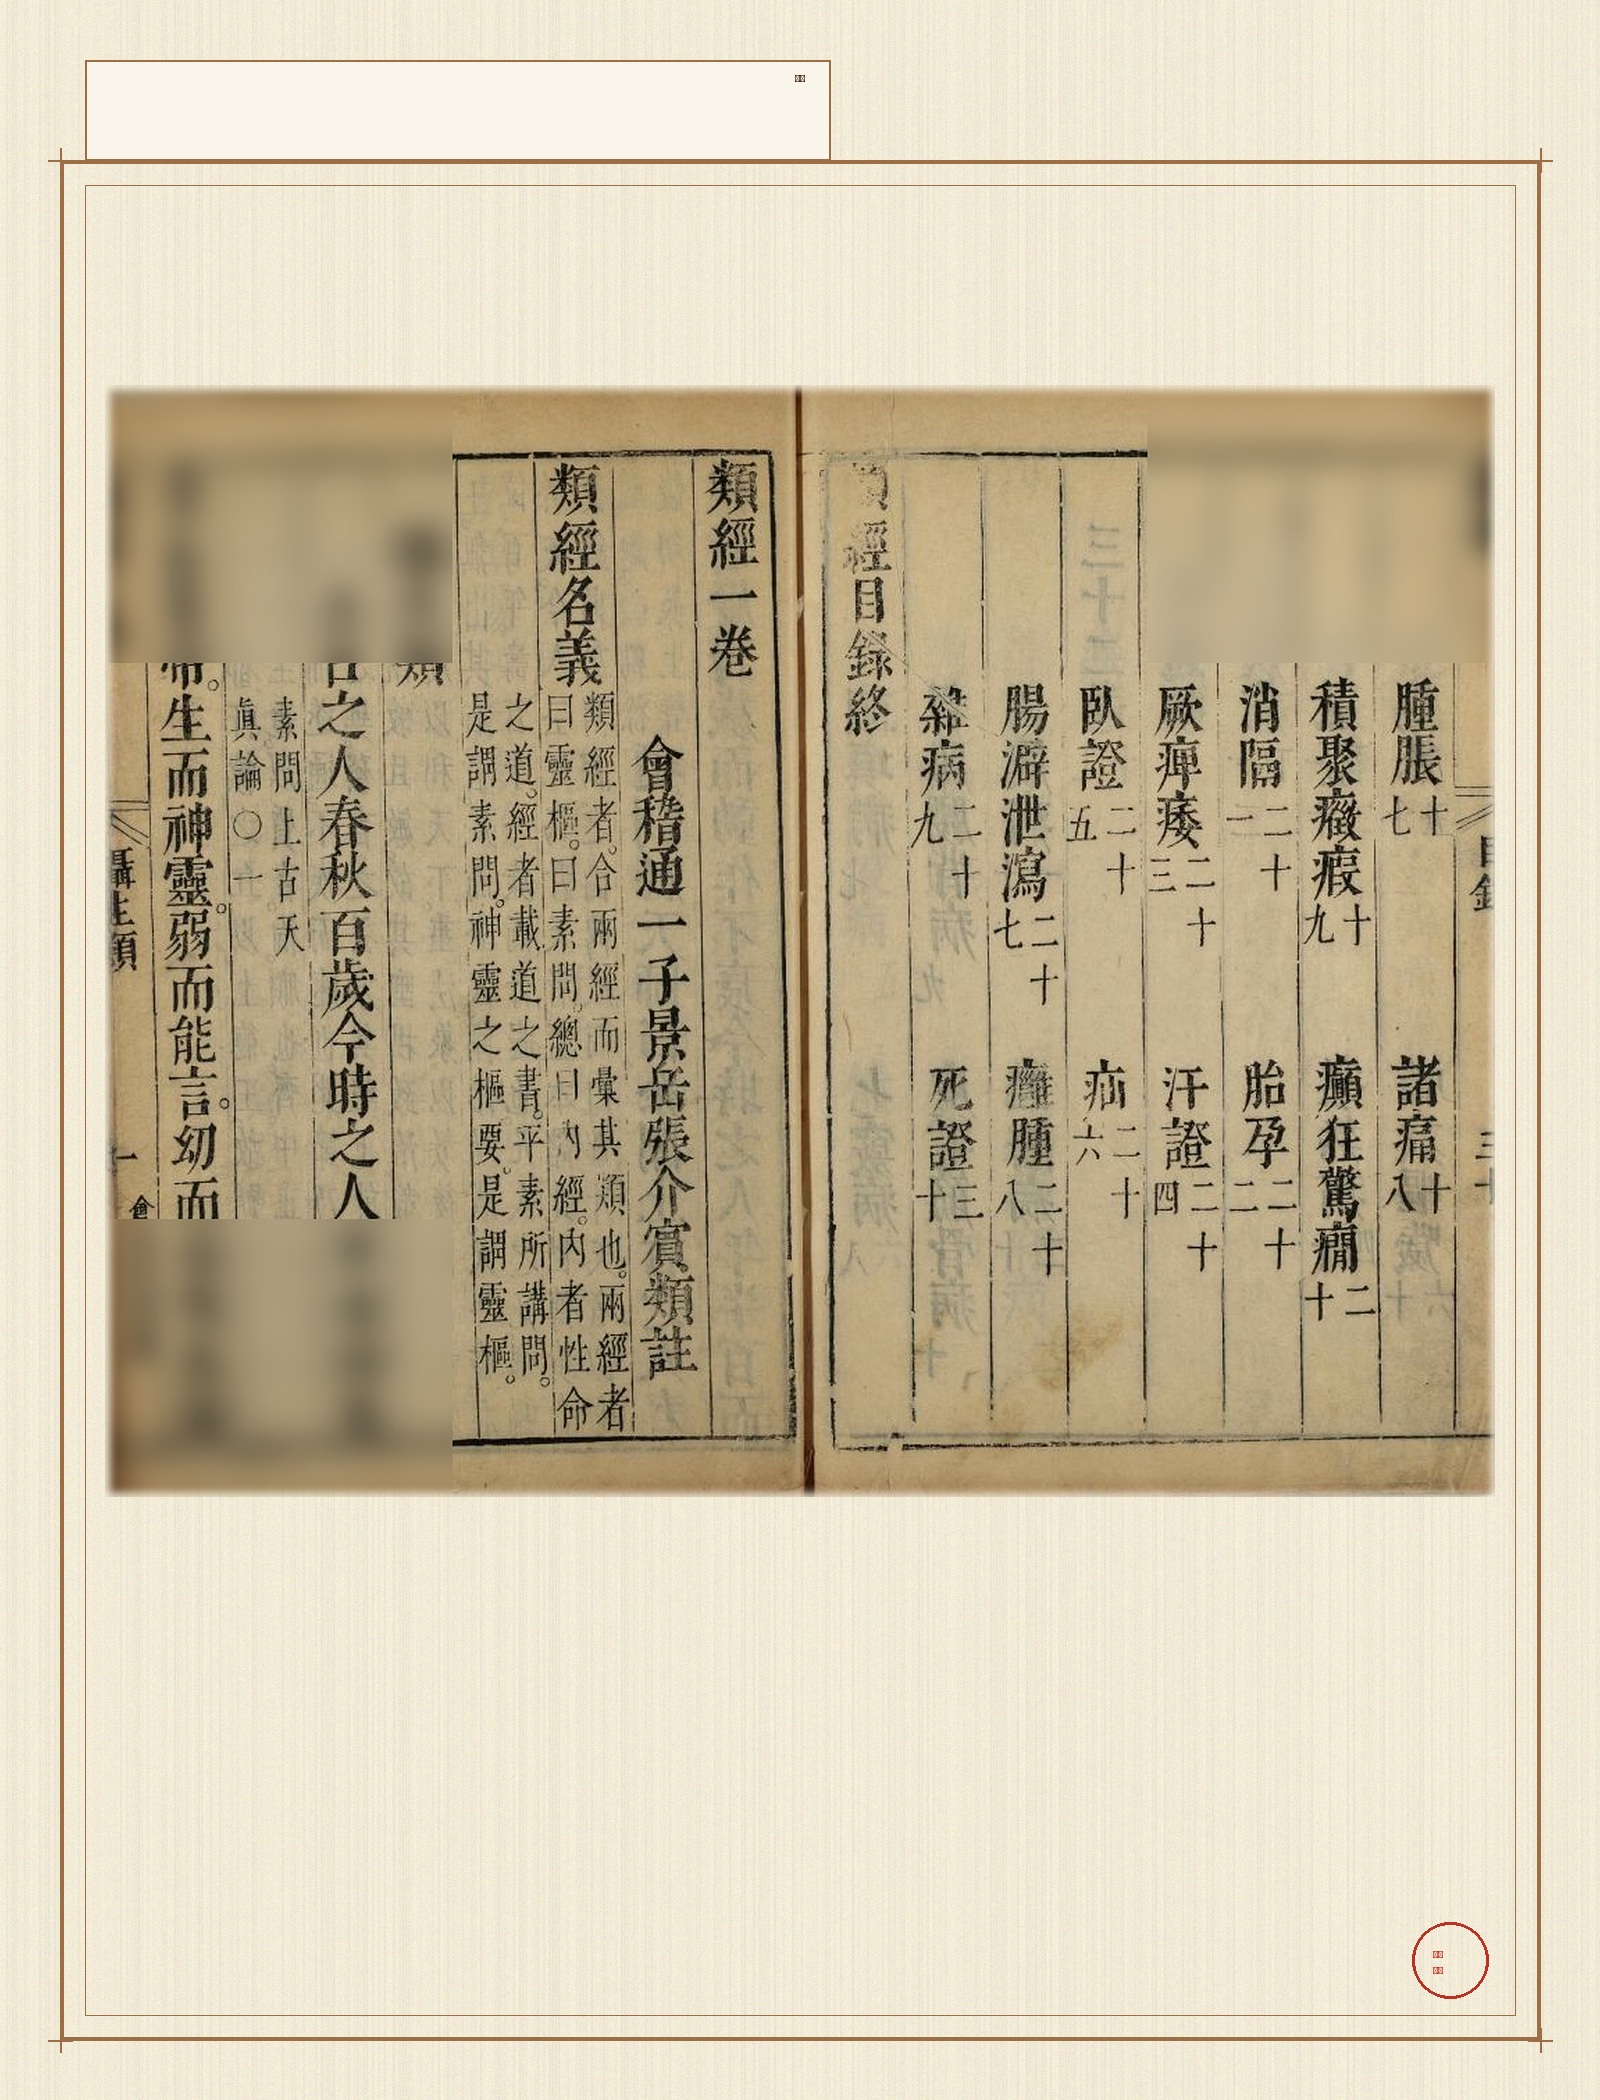 目錄
腫脹十七 諸痛十八
積聚癥瘕十九 癲狂驚癇二十
消隔二十一 胎孕二十二
厥痺痿二十三 汗證二十四
臥證二十五 疝二十六
腸澼泄瀉二十七 癰腫二十八
雜病二十九 死證三十
類經目錄終
類經一卷
會稽通一子景岳張介賓類註
類經名義
類經者。合兩經而彙其類也。兩經者
曰靈樞。曰素問。總曰內經。內者性命
之道。經者載道之書。平素所講問。
是謂素問。神靈之樞要。是謂靈樞。
類
之人春秋百歲今時之人
素問上古天
眞論〇一
生而神靈。弱而能言。幼而
攝生類 一